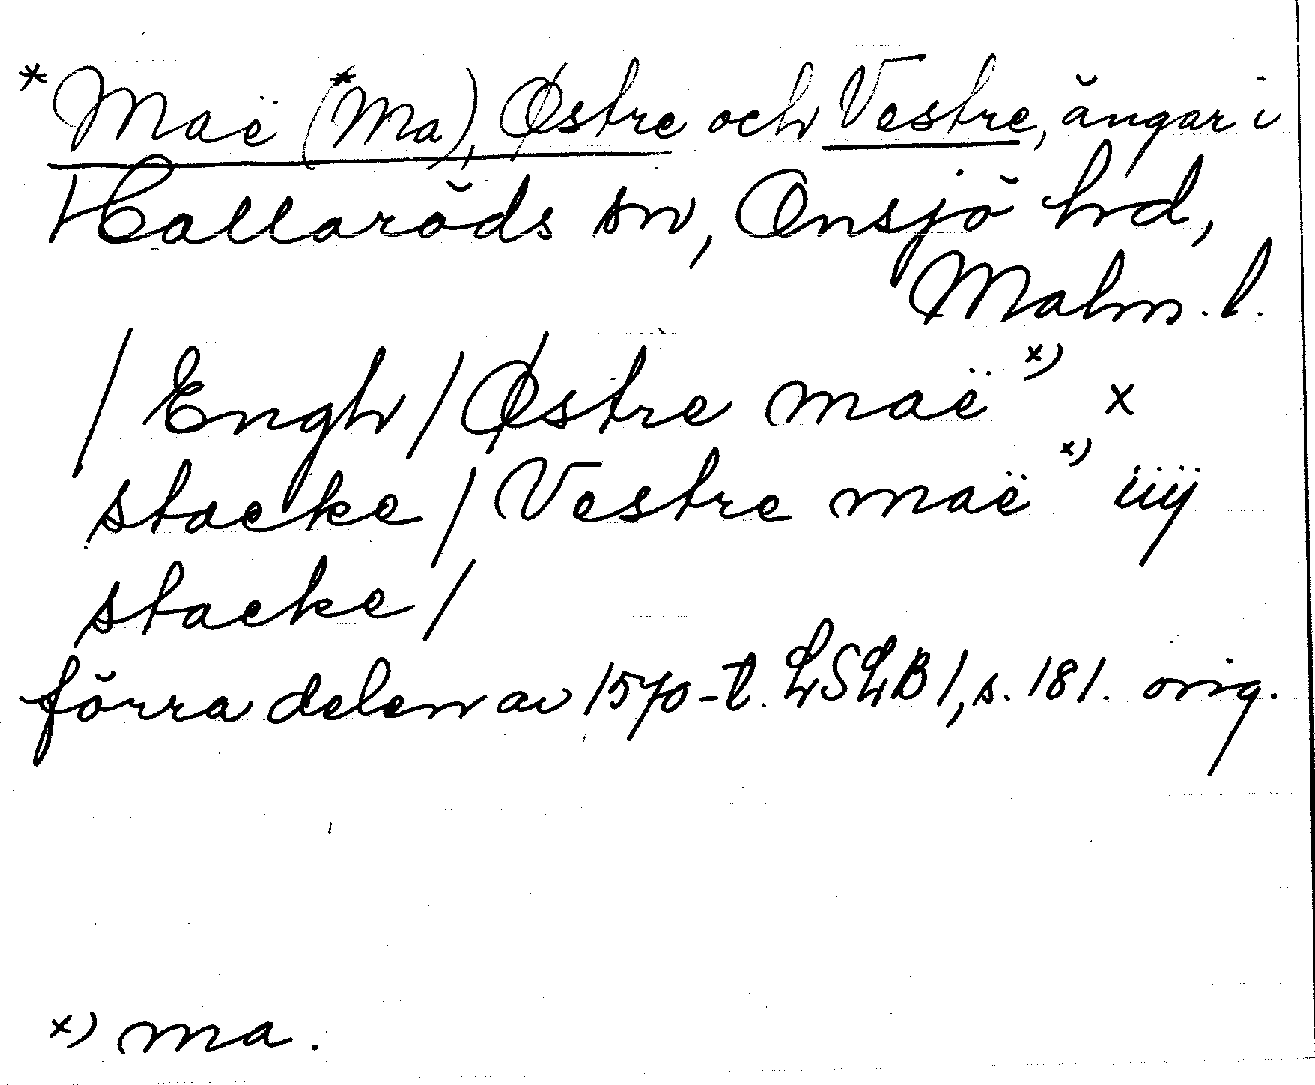 *Maë (*Ma), Østre och Vestre, ängar i
Hallaröds sn, Onsjö hd,
Malm. l.
/ Engh / Østre maë x) x
stacke / Vestre maë x) iiij
stacke /
förra delen av 1570-t. LSLB 1, s. 181. orig.
x) ma.